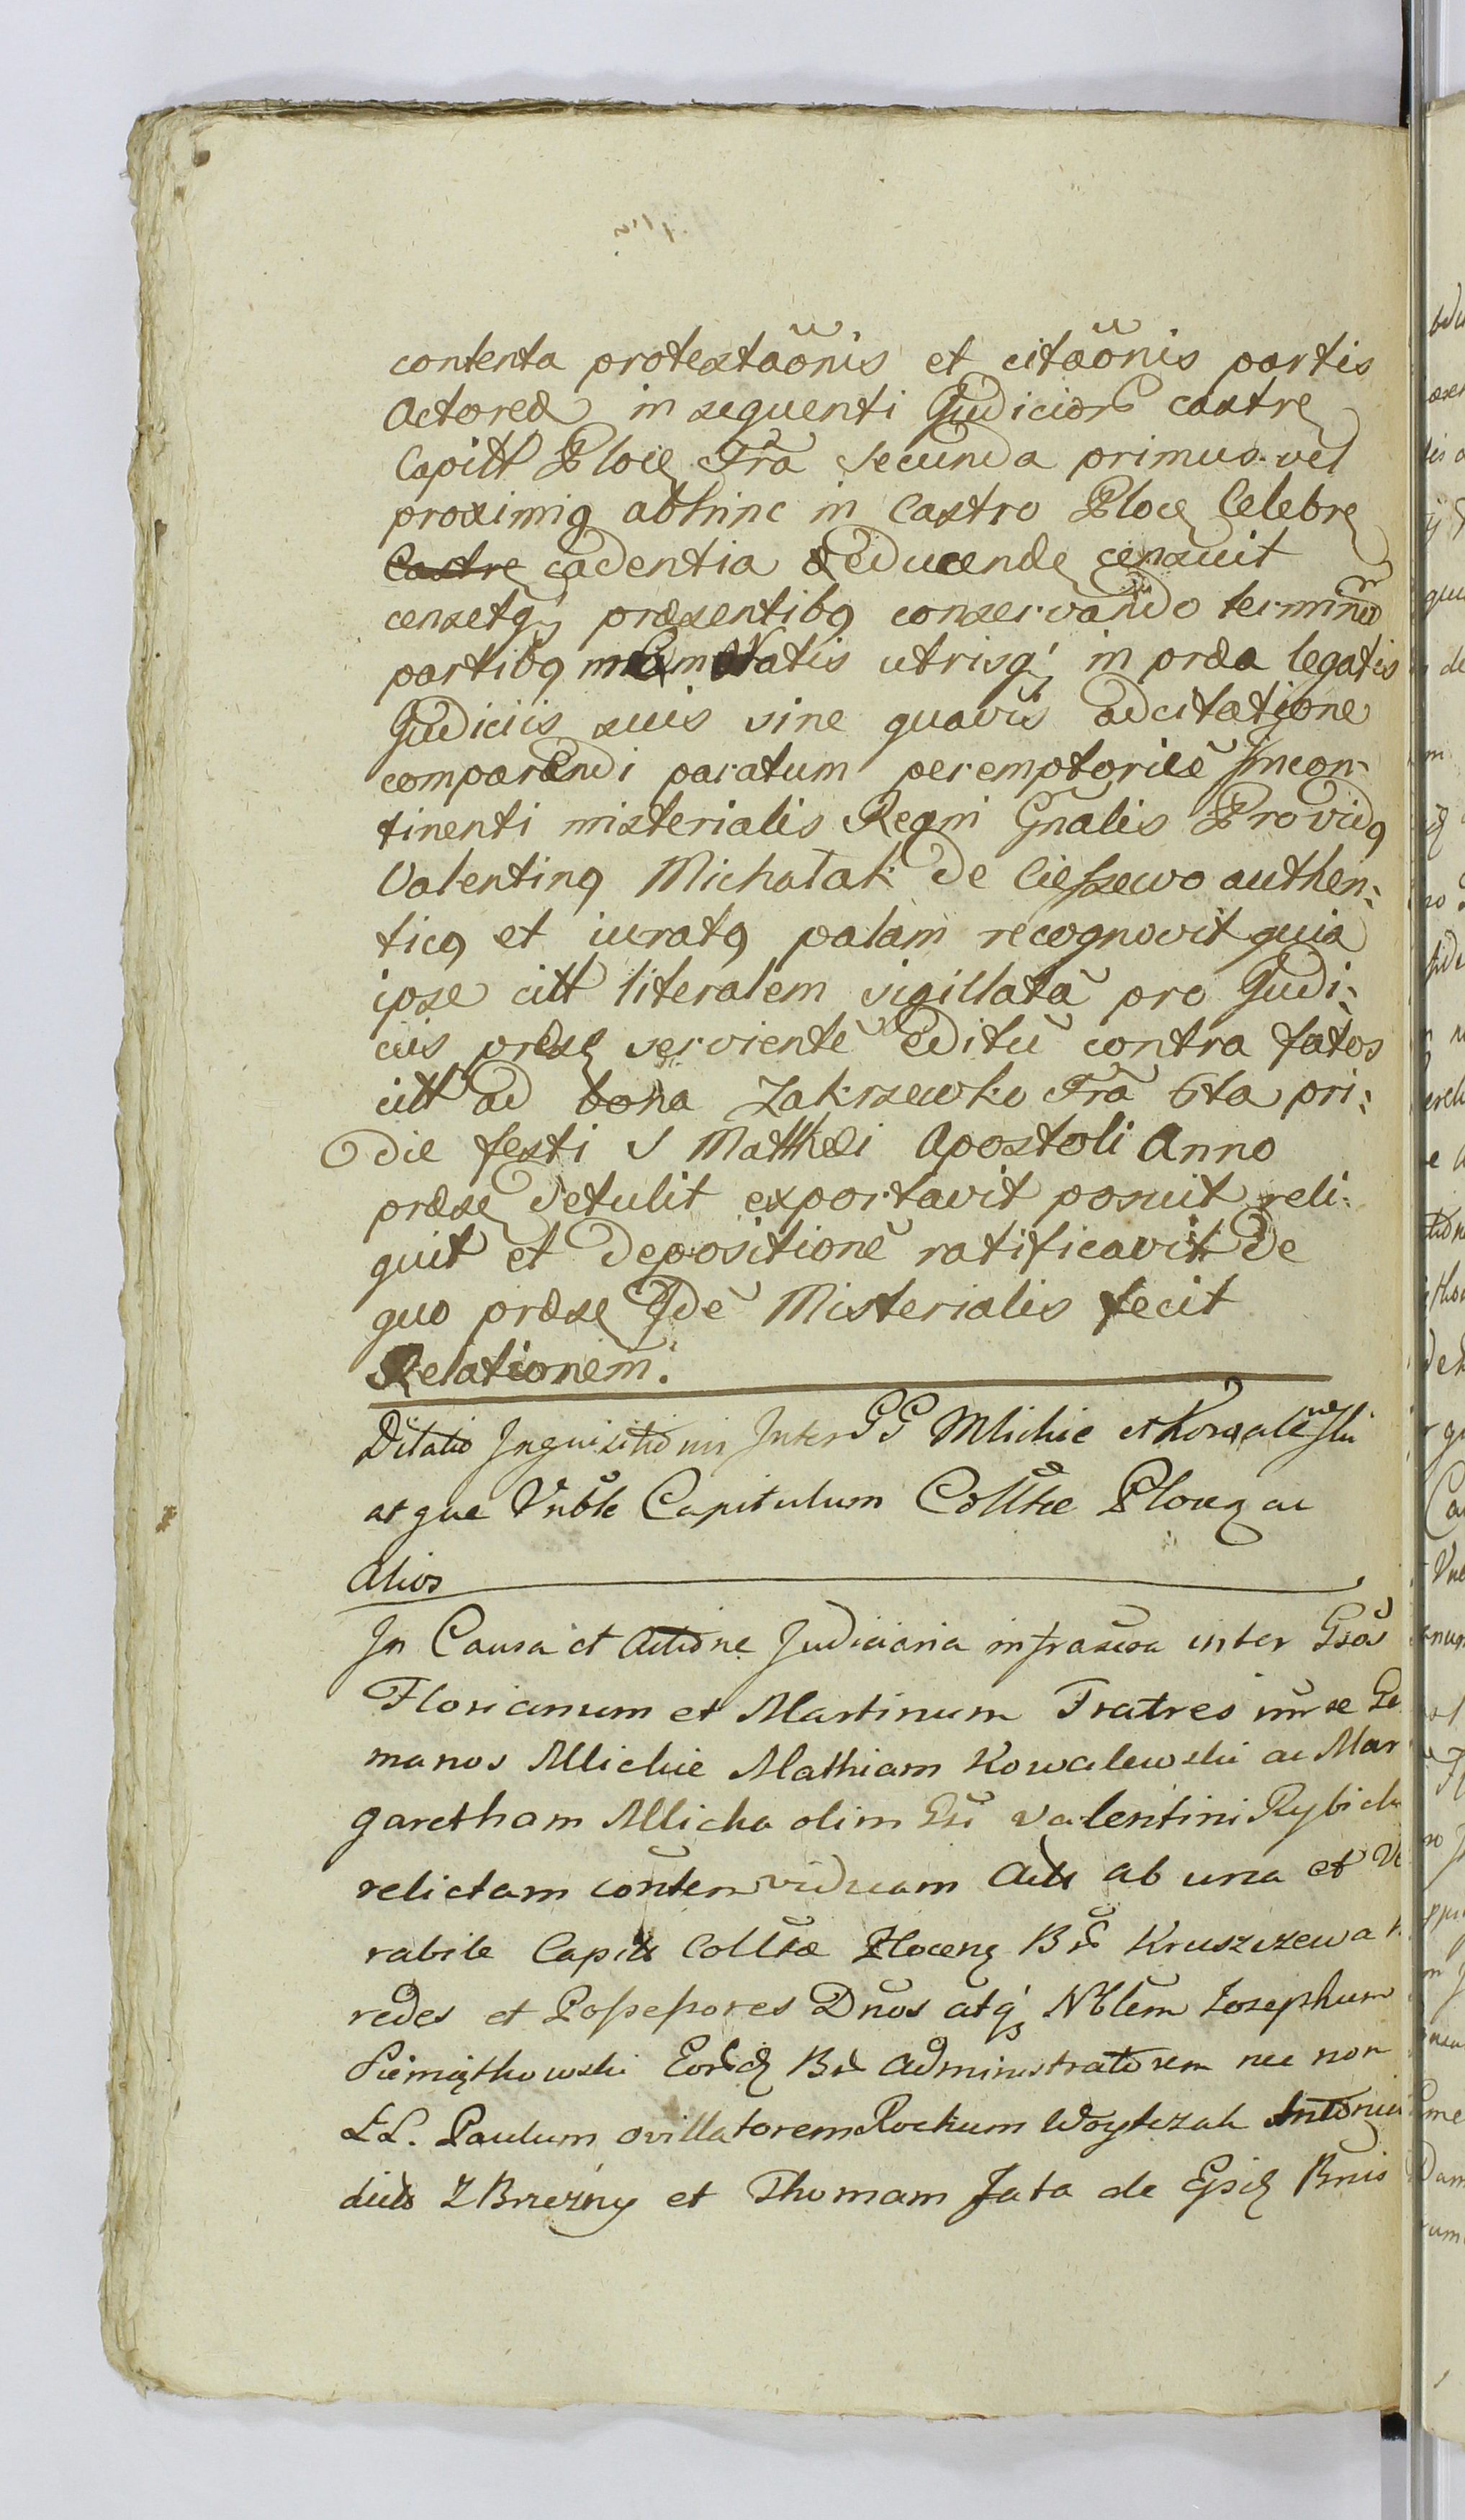 contenta protestãonis et citãonis partis
Actoreæ in sequenti Judicior castre
Capitt Ploce Fra secunda primus vel
proximiq abhinc in Castro Ploce Celebre
Castre cadentia deducende censuit
censetq præsentibq conservando terminũ
partibq utrisq in præa legatis
Judiciis suis sine quavis adcitatione
comparendi paratum peremptoriẽ Incon-
tinenti misterialis Regni Gnãlis Providq
Valentinq Michalak de Cieszewo authen:
ticq et iuratq palam recognovit quia
ipse citt literalem sigillatã pro Judi:
ciis præse servientẽ Editũ contra fatos
citt ad bona Zakrzewko Fra 6ta pri:
die festi S Matthæi Apostoli Anno
præse detulit exportavit posuit reli:
quit et depositionẽ ratificavit de
quo præse Idẽ Misterialis fecit
Relationem.
Dilatio Inquisitionis Inter GG Mlickie et Kowalewski
atque Vnble Capitulum Colltæ Plocen ac
Alios
In Causa et Actione Judiciaria infrascra inter Gsos
Florianum et Martinum Fratres inter se Ge
manos Mlickie Mathiam Kowalewski ac Mar
garetham Mlicka olim Gsi Valentini Rybick
relictam conten viduam Acts ab una et Ve
rabile Capitt Colltæ Plocen Br Kruszczewa h
redes et Possessores Dnos atq Nblem Josephum
Siemiątkowski Eord Br Administratorem nec non
LL. Paulum ovillatorem Rochum Woytczak Antoniu
dicts Z Brzezny et Thomam Jata de Eisd Bnis